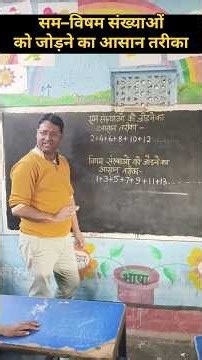 सम–विषम संख्याओं
को जोड़ने का आसान तरीका
सम संख्याओं को जोड़ने का
आसान तरीका–
2+4+6+8+10+12
विषम संख्याओं को जोड़ने का
आसान तरीका–
1+3+5+7+9+11+13.....
भाषा